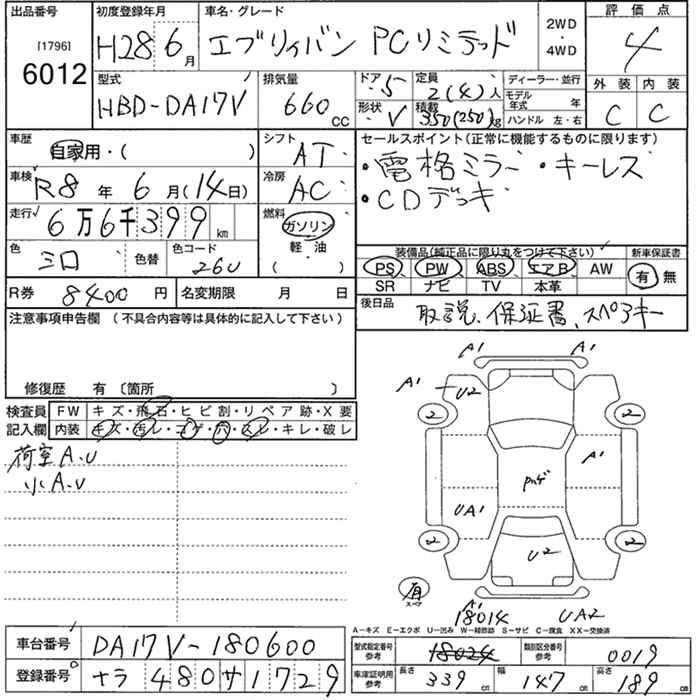 出品番号 初度登録年月 車名・グレード 2WD・4WD 評価点
[1796] 6012 H28 6月 エブリィバン PCリミテッド 4
型式 排気量 ドア 5 定員 2(4)人 ディーラー・並行 外装 内装
HBD-DA17V 660CC 形状 V 積載 350(250)kg モデル年式 年 C C
ハンドル 左・右
車歴 シフト セールスポイント(正常に機能するものに限ります)
自家用・( ) AT ・電格ミラー・キーレス
車検 R8年 6月(14日) 冷房 AC ・CDデッキ
走行 6万6千399km 燃料 ガソリン
色 シロ 色替 色コード 26U 軽・油 ( )
装備品(純正品に限り丸をつけて下さい) 新車保証書
PS PW ABS エアB AW 有 無
SR ナビ TV 本革
R券 8400円 名変期限 月 日 後日品 取説、保証書、スペアキー
注意事項申告欄 (不具合内容等は具体的に記入して下さい)
修復歴 有 〔箇所 〕
検査員 FW キズ・飛石・ヒビ割・リペア跡・X要
記入欄 内装 キズ・汚レ・コゲ・穴・スレ・キレ・破レ
荷室A.U
小A.U
A1 A1
A1 U2
2 2
A1
UA1
2 U2 2
有
スペア
A1
18014 UA2
A-キズ E-エクボ U-凹み W-補修跡 S-サビ C-腐食 XX-交換済
車台番号 DA17V-180600 型式指定番号 参考 18024 類別区分番号 参考 0019
登録番号 ナラ 480 サ 1729 車庫証明用 参考 長さ 339cm 幅 147cm 高さ 189cm